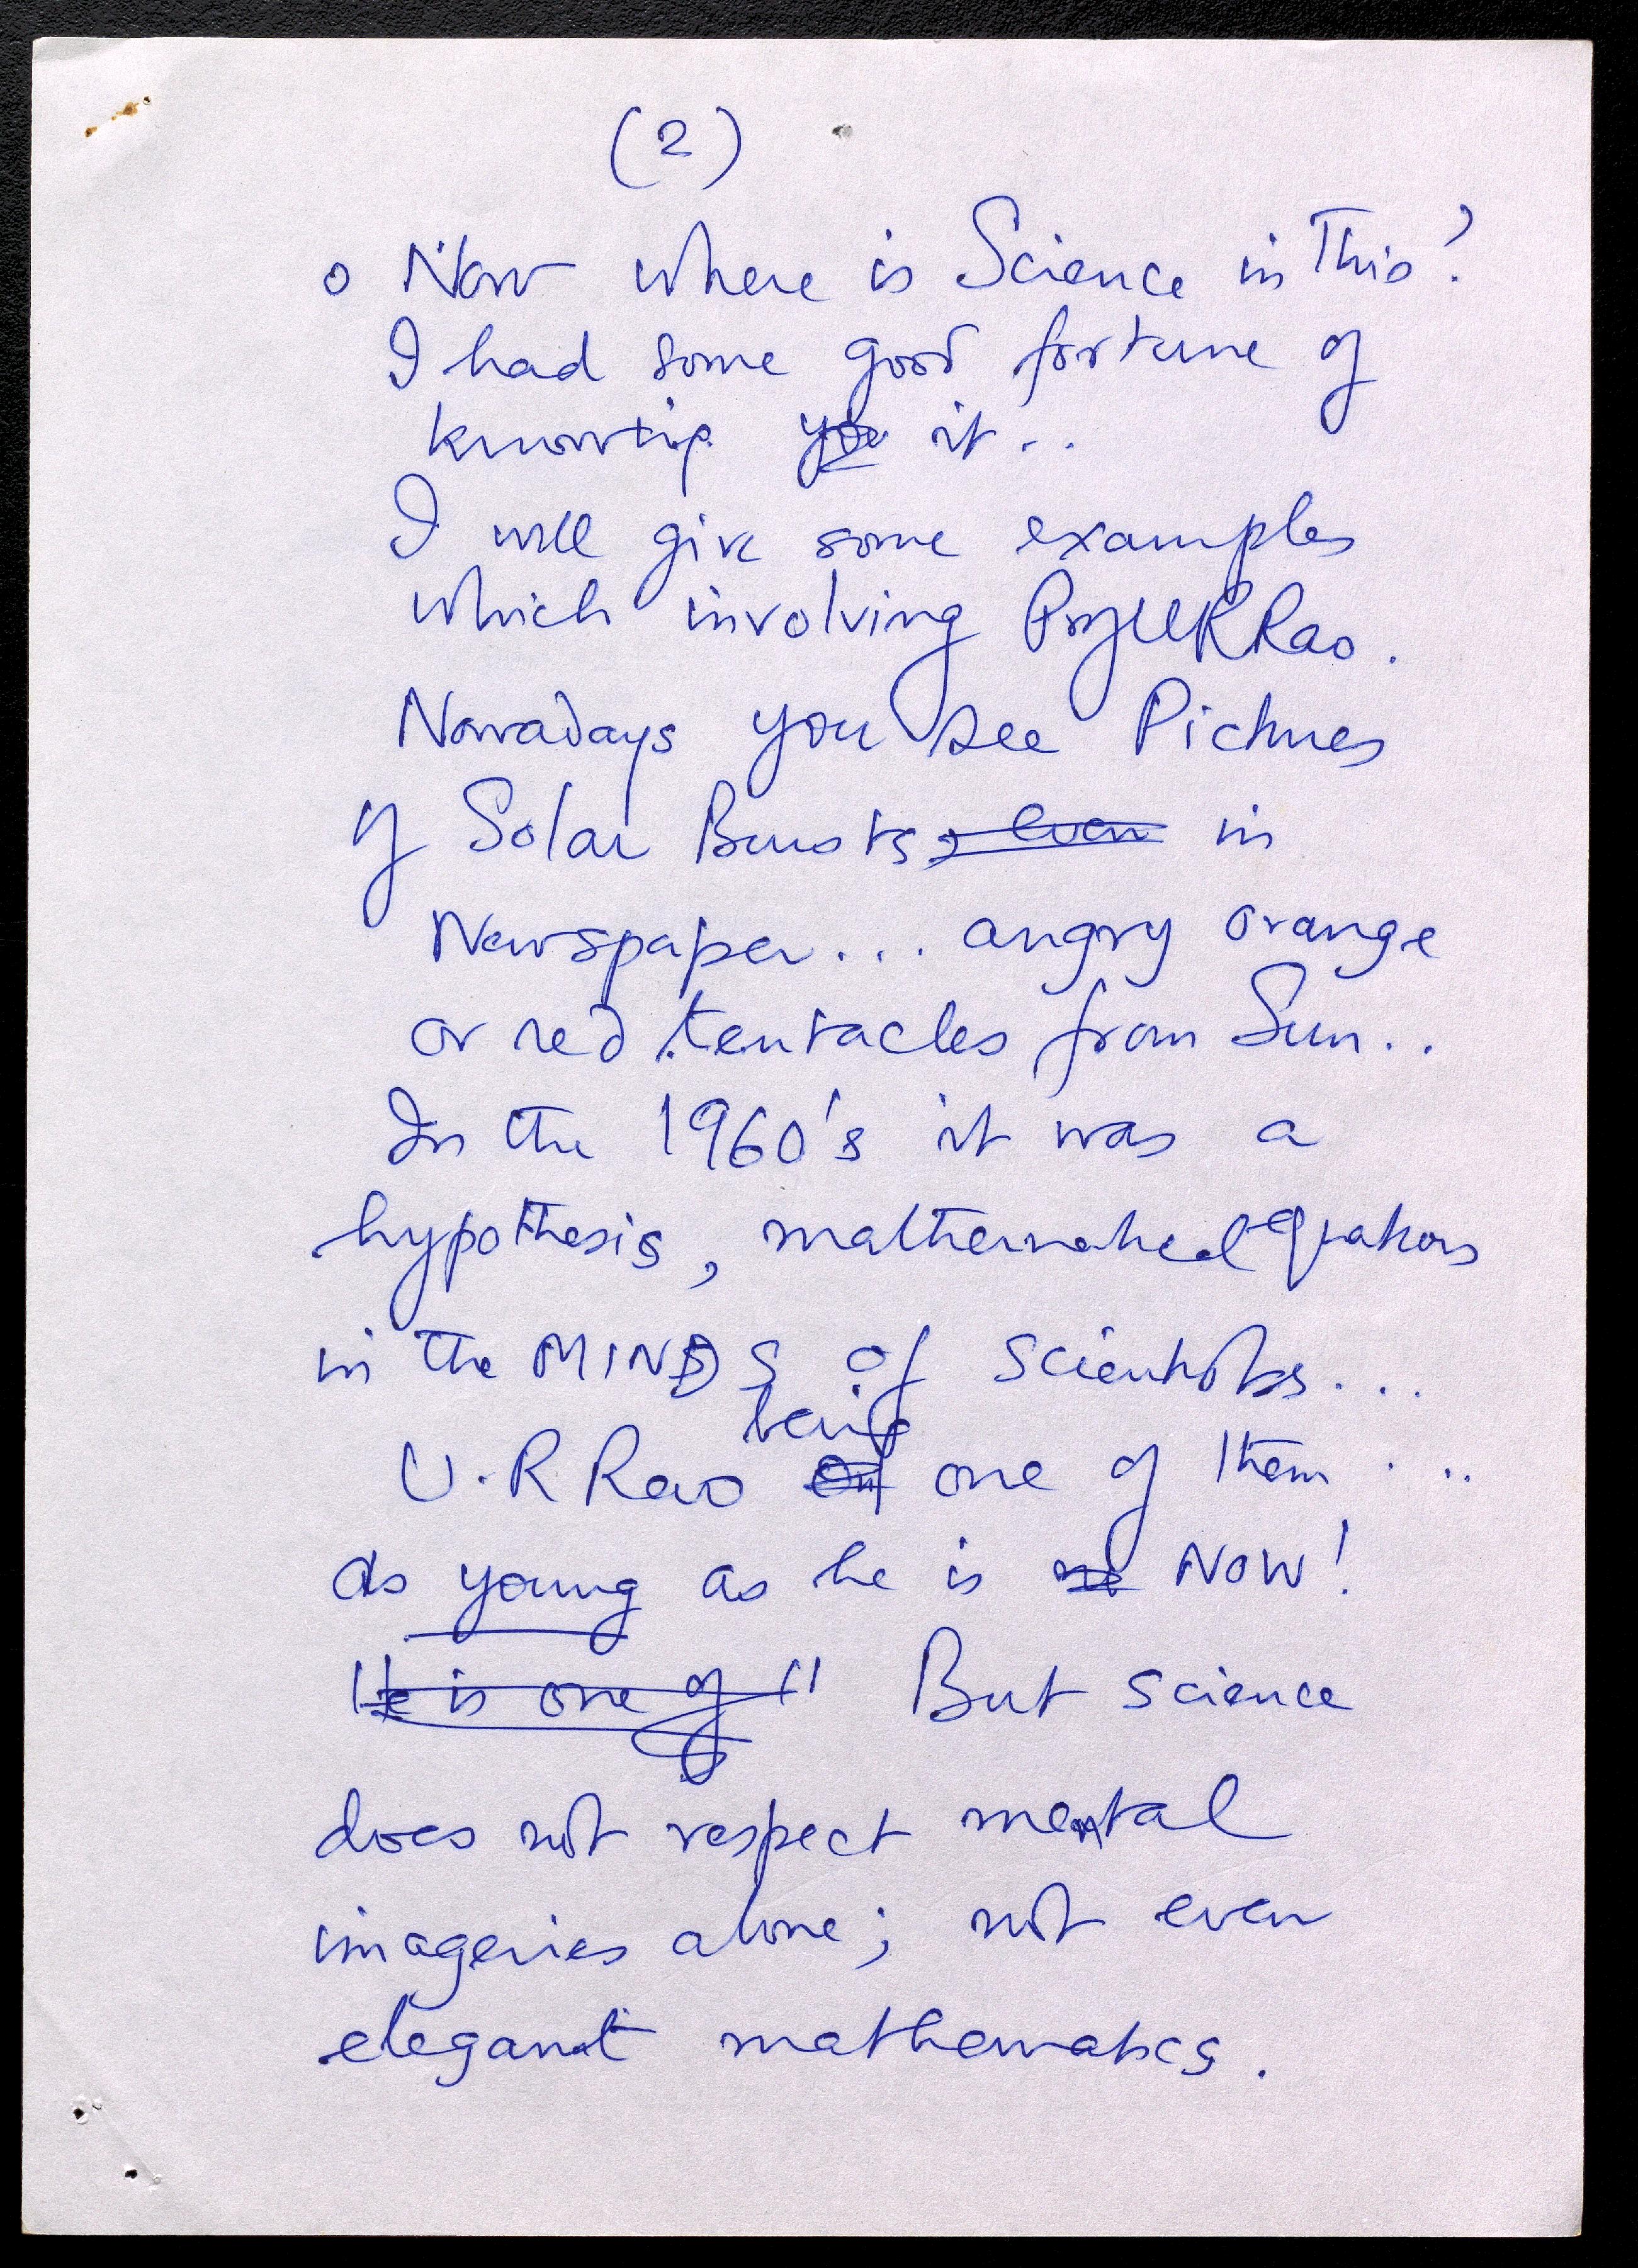 (2)
o Now where is Science in This?
I had some good fortune of
knowing you it..
I will give some examples
which involving Prof URRao.
Nowadays you see Pictures
of Solar Bursts, even in
Newspaper... angry orange
or red tentacles from Sun..
In the 1960's it was a
hypothesis, mathematical equations
in the MINDS of scientists...
being
U.R Rao one of them ...
as young as he is NOW!
He is one of " But science
does not respect mental
imageries alone; not even
elegant mathematics.